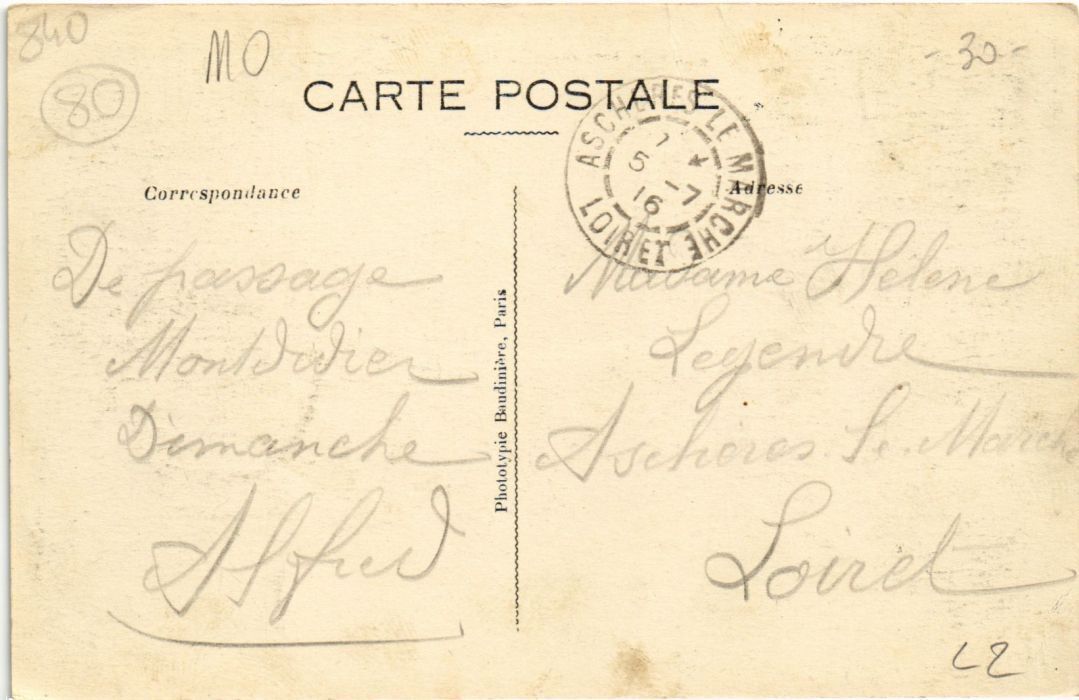 840
80
MO
- 30 -
CARTE POSTALE
ASCHERES LE MARCHE
7
5 *
16 - 7
LOIRET
Correspondance
Adresse
De passage
Montdidier
Dimanche
Alfred
Phototypie Baudinière, Paris
Madame Hélène
Legendre
Aschères-le-Marché
Loiret